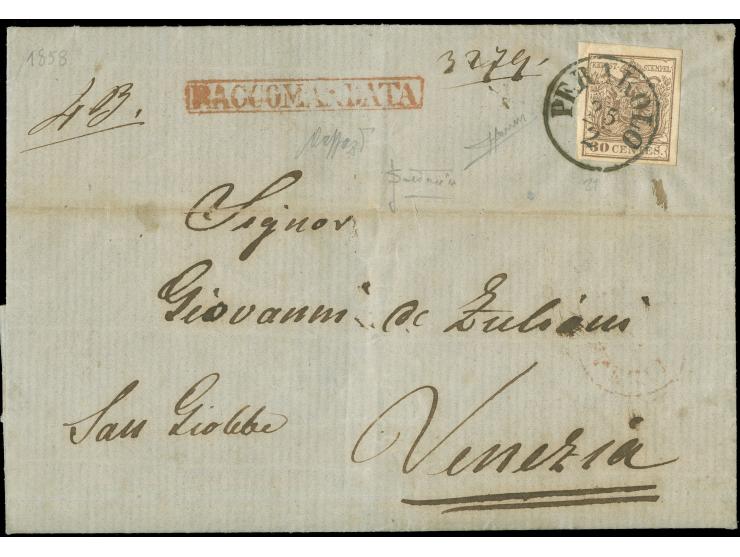 1858
3279.
4 B.
RACCOMANDATA
PERAROLO
25
2
STEMPEL
30 CENTES.
21
Signor
Giovanni de Zuliani
San Giobbe
Venezia